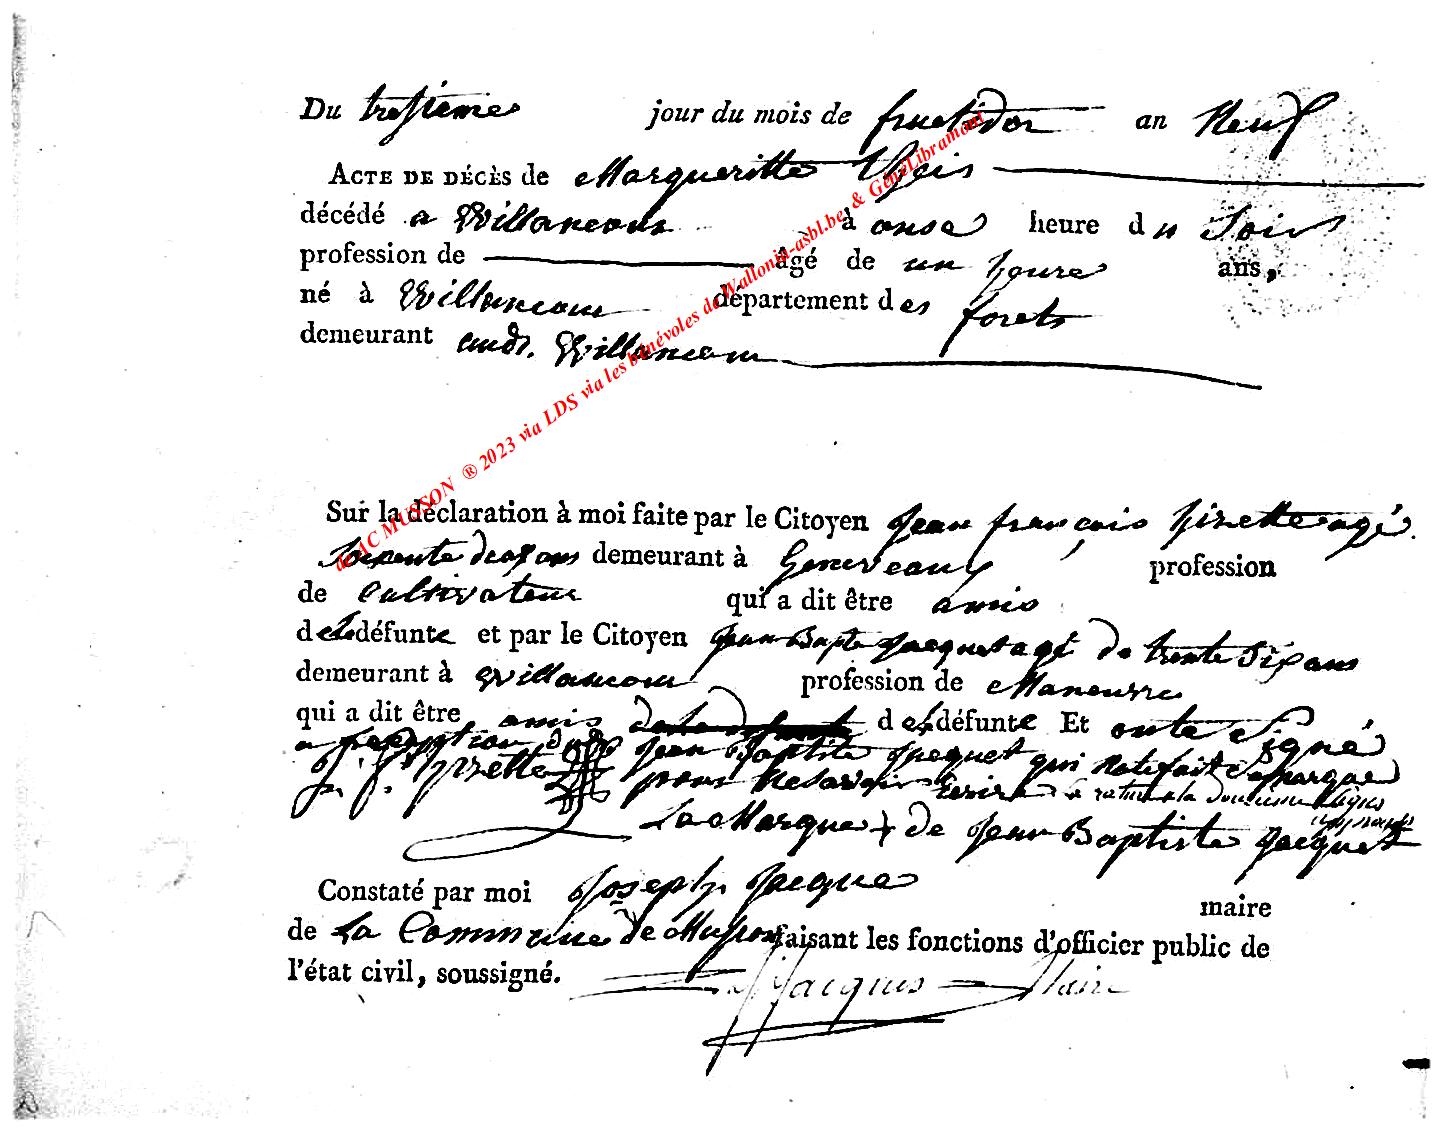 Du tresieme jour du mois de fructidor an Neuf
ACTE DE DÉCÈS de Margueritte
décédé a Willancour à onse heure du Soir
profession de âgé de un heure ans,
né à Willancour département des forets
demeurant aud. Willancour
de AC MUSSON ® 2023 via LDS via les bénévoles de Wallonia-asbl.be & GénéLibramont
Sur la déclaration à moi faite par le Citoyen Jean françois agé
ans demeurant à profession
de Cultivateur qui a dit être amis
de la défunte et par le Citoyen Jean Bapte Jacquet agé de trente Six ans
demeurant à Willancour profession de Maneuvre
qui a dit être amis de la défunte Et onte Signé
a Jean Baptiste Jacquet qui Natefait Samarque
J. f. pour Nesavoir Ecrire
La Marque + de Jean Baptiste Jacquet
Constaté par moi Joseph Jacque maire
de La Commune de Musson faisant les fonctions d'officier public de
l'état civil, soussigné.
Jacques Maire